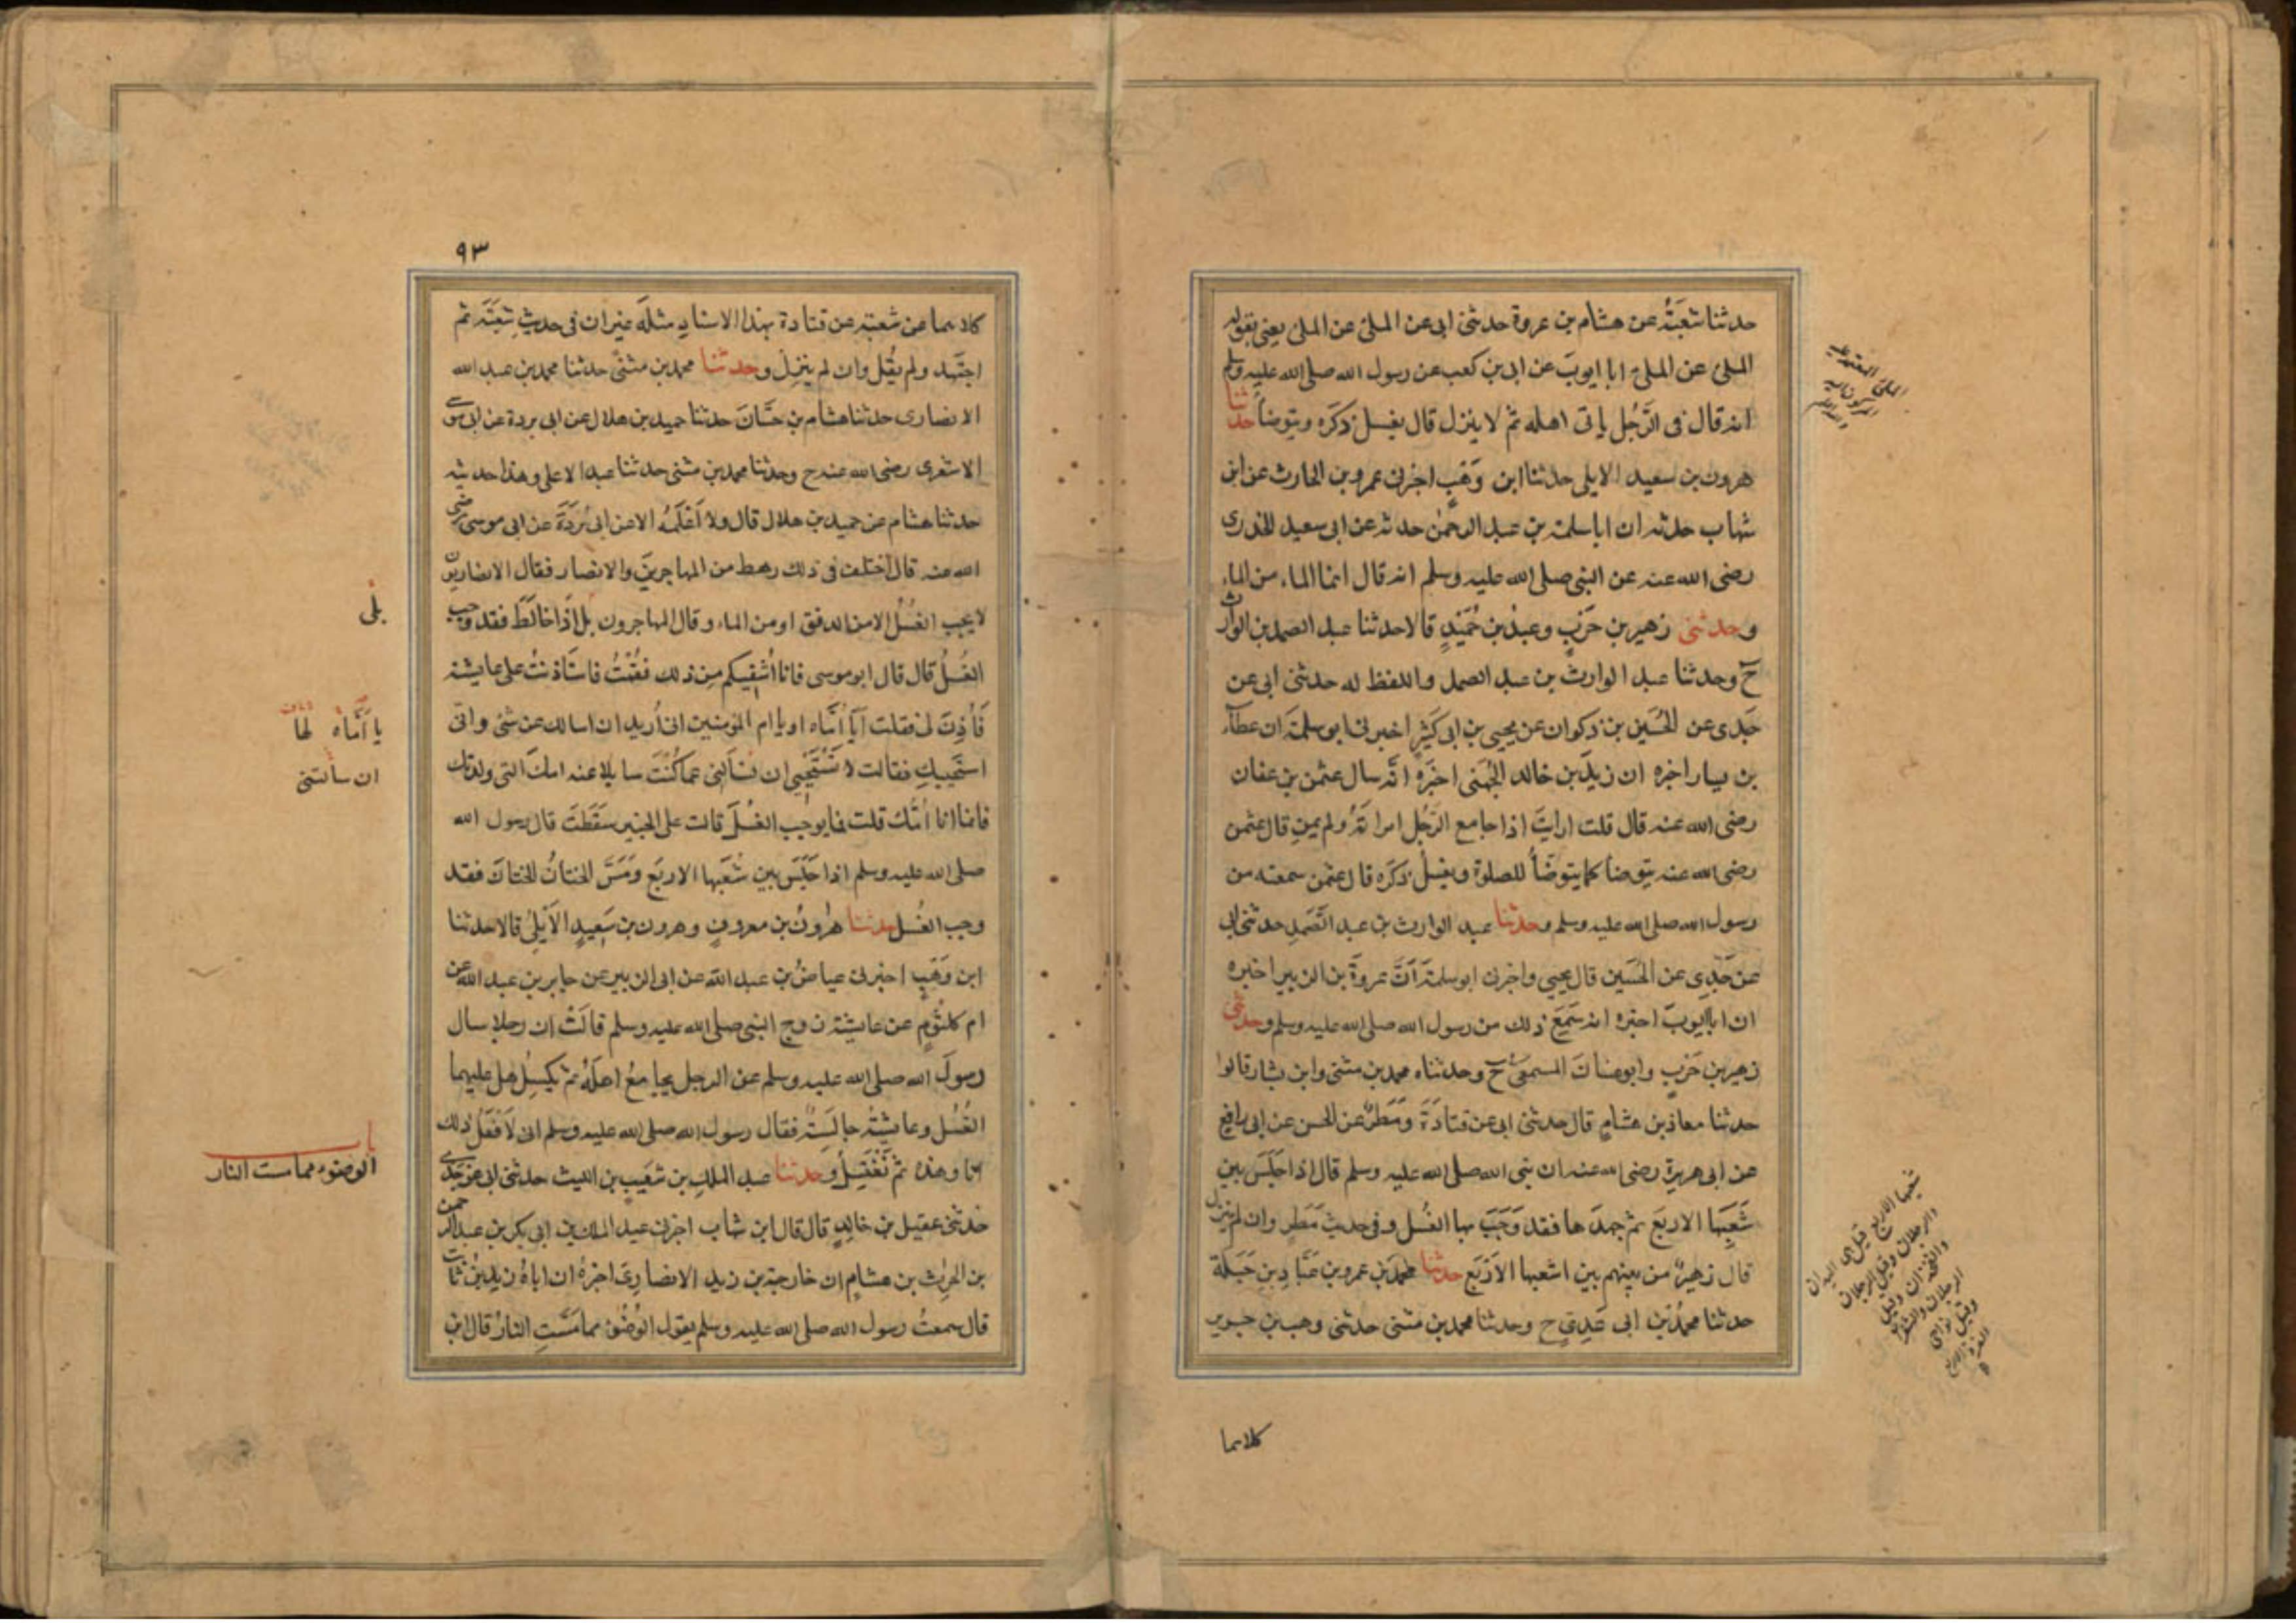 حدثنا شعبة عن هشام بن عروة حدثني ابى عن الملئ عن الملئ يعنى بقوله
الملئ عن الملئ ابا ايوب عن ابى بن كعب عن رسول الله صلى الله عليه وسلم
انه قال فى الرَّجُل ياتى اهله ثم لا ينزل قال يغسل ذكَرَه ويتوضأ حدثنا
هرون بن سعيد الايلى حدثنا ابن وَهْبٍ اخبرنى عمرو بن الحارث عن ابن
شهاب حدثه ان ابا سلمة بن عبد الرحمٰن حدثه عن ابى سعيد الخدرى
رضى الله عنه عن النبى صلى الله عليه وسلم انه قال انما الماء من الماء
وحدثنى زهير بن حَرْبٍ وعبد بن حُمَيْدٍ قالا حدثنا عبد الصمد بن الوارث
ح وحدثنا عبد الوارث بن عبد الصمد واللفظ له حدثنى ابى عن
جَدى عن الحُسَين بن ذكوان عن يحيى بن ابى كَثِيْرٍ اخبرنى ابو سلمَة ان عطآء
بن يسار اخبره ان زيدَ بن خالد الجُهَنى اخبَرَه انّه سال عثمن بن عفان
رضى الله عنه قال قلت ارايتَ اذا جامع الرَّجُل امراتَهُ ولم يمنِ قال عثمن
رضى الله عنه يتوضأ كما يتوضَأُ للصلوة ويغسلُ ذكَرَه قال عثمن سمعته من
رسول الله صلى الله عليه وسلم وحدثنا عبد الوارث بن عبد الصَّمَدِ حدثنى ابى
عن جَدِى عن الحُسَين قال يحيى واخبرنى ابو سلمَة اَنَّ عروَةَ بن الزبير اخبره
ان ابا ايوبَ اخبره انه سَمِعَ ذلك من رسول الله صلى الله عليه وسلم وحدثنى
زهير بن حَرْبٍ وابو غسانَ المسمعىُّ ح وحدثناه محمد بن مثنى وابن بشار قالوا
حدثنا معاذ بن هشامٍ قال حدثنى ابى عن قتادَةَ ومَطَرٌ عن الحسن عن ابى رافعٍ
عن ابى هريرة رضى الله عنه ان نبى الله صلى الله عليه وسلم قال اذا جَلَسَ بين
شُعَبِهَا الاربَع ثم جهدَ ها فقد وَجَبَ بها الغُسل وفى حديث مَطَرٍ وان لم ينزل
قال زهيرٌ من بينهم بين اشعبها الاَرْبَع حدثنا محمد بن عمرو بن عَبَّادِ بنِ جَبَلة
حدثنا محمدُ بن ابى عَدِىٍّ ح وحدثنا محمد بن مثنى حدثنى وهب بن جرير
كلاهما
شعبها الاربع قيل هى اليدان
والرجلان وقيل الرجلان
والفخذان وقيل
الرجلان والشفران
٩٣
كلاهما عن شعبة عن قتادة بهذا الاسناد مثلَه غير ان فى حديثِ شعبَةَ ثم
اجتَهد ولم يقُل وان لم ينزل وحدثنا محمد بن مثنَّى حدثنا محمد بن عبد الله
الانصارى حدثنا هشام بن حسَّانَ حدثنا حميد بن هلال عن ابى بردة عن ابى موسى
الاشعرى رضى الله عنه ح وحدثنا محمد بن مثنى حدثنا عبد الاعلى وهذا حديثه
حدثنا هشام عن حميد بن هلال قال ولا اَعْلَمُهُ الا عن ابى بُرْدَةَ عن ابى موسى رضى
الله عنه قال اختلف فى ذلك رهط من المهاجرين والانصار فقال الانصاريون
لا يجب الغُسْلُ الا من الدفق او من الماء وقال المهاجرون بل اذَا خالَطَ فقد وجب
بلى
الغُسلُ قال قال ابو موسى فانا اُشفِيكم مِن ذلك فقُمْتُ فاستاذنتُ على عايشة
فَأُذِنَ لى فقلت اَيَا اُمَّاه او يا ام المؤمنين انى اُريد ان اسالك عن شئ وانى
يا اُمَّاهُ لها
استحيِيكِ فقالت لا تَسْتَحْيِى ان تسألَنى عما كُنْتَ سايلا عنه امكَ التى ولدتك
ان سألتنى
فانما انا اُمُّك قلت فما يوجب الغُسلَ قالت على الخبير سَقَطتَ قال رسول الله
صلى الله عليه وسلم اذا جَلَسَ بين شُعَبِها الاربَع ومَسَّ الختانُ الختانَ فقد
وجب الغُسل حدثنا هٰرونُ بن معروفٍ وهرون بن سَعيدٍ الاَيْلِىُّ قالا حدثنا
ابن وَهْبٍ اخبرنى عياضُ بن عبد الله عن ابى الزبير عن جابر بن عبد الله عن
ام كلثُومٍ عن عايشة زوج النبى صلى الله عليه وسلم قالَتْ ان رجلا سال
رسولَ الله صلى الله عليه وسلم عن الرجل يجامعُ اهلَهُ ثم يكسِلُ هل عليهما
الغُسْل وعايشَةُ جالسَةٌ فقال رسول الله صلى الله عليه وسلم انى لاَفْعَلُ ذلك
انا وهذه ثم نَغْتَسِلُ وحدثنا عبد الملك بن شعَيبِ بن الليث حدثنى ابى عن جدى
باب
الوضوء مما مست النار
حدثنى عقيل بن خالدٍ قال قال ابن شهاب اخبرنى عبد الملك بن ابى بكر بن عبد الرحمن
بن الحرِٰث بن هشامٍ ان خارجة بن زيد الانصارِىَّ اخبرهُ ان اباهُ زيد بنُ ثابت
قال سمعتُ رسول الله صلى الله عليه وسلم يقول الوُضُوْءُ مما مَسَّتِ النارُ قال ابن